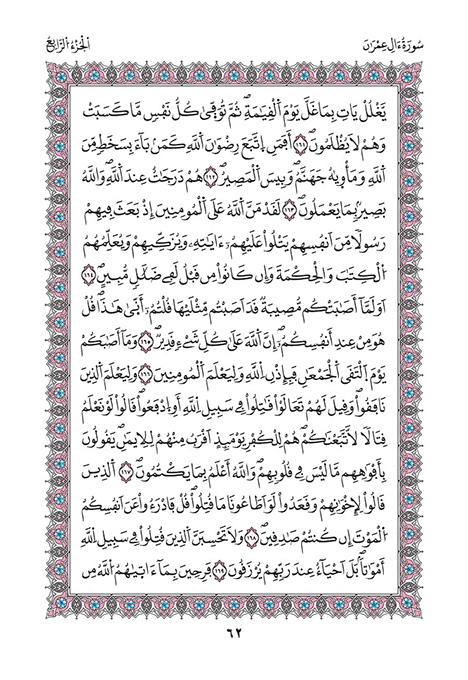 سُورَةُ ءَالِ عِمْرَٰنَ الْجُزْءُ الرَّابِعُ
يَّغْلُلْ يَاتِ بِمَا غَلَّ يَوْمَ اَ۬لْقِيَٰمَةِۖ ثُمَّ تُوَفّ۪يٰ كُلُّ نَفْسٖ مَّا كَسَبَتْ
وَهُمْ لَا يُظْلَمُونَۖ ١٦١ أَفَمَنِ اِ۪تَّبَعَ رِضْوَٰنَ اَ۬للَّهِ كَمَنۢ بَآءَ بِسَخَطٖ مِّنَ
اَ۬للَّهِ وَمَأْو۪يٰهُ جَهَنَّمُۖ وَبِيسَ اَ۬لْمَصِيرُۖ ١٦٢ هُمْ دَرَجَٰتٌ عِندَ اَ۬للَّهِۖ وَاللَّهُ
بَصِيرُۢ بِمَا يَعْمَلُونَۖ ١٦٣ لَقَدْ مَنَّ اَ۬للَّهُ عَلَي اَ۬لْمُومِنِينَ إِذْ بَعَثَ فِيهِمْ
رَسُولاٗ مِّنَ اَنفُسِهِمْ يَتْلُواْ عَلَيْهِمُۥٓ ءَايَٰتِهِۦ وَيُزَكِّيهِمْ وَيُعَلِّمُهُمُ
اُ۬لْكِتَٰبَ وَالْحِكْمَةَ وَإِن كَانُواْ مِن قَبْلُ لَفِے ضَلَٰلٖ مُّبِينٍۖ ١٦٤
اَوَلَمَّآ أَصَٰبَتْكُم مُّصِيبَةٞ قَدَ اَصَبْتُم مِّثْلَيْهَا قُلْتُمُۥٓ أَنّ۪يٰ هَٰذَاۖ قُلْ
هُوَ مِنْ عِندِ أَنفُسِكُمُۥٓۖ إِنَّ اَ۬للَّهَ عَلَيٰ كُلِّ شَےْءٖ قَدِيرٞۖ ١٦٥ وَمَآ أَصَٰبَكُمْ
يَوْمَ اَ۬لْتَقَي اَ۬لْجَمْعَٰنِ فَبِإِذْنِ اِ۬للَّهِ وَلِيَعْلَمَ اَ۬لْمُومِنِينَ ١٦٦ وَلِيَعْلَمَ اَ۬لذِينَ
نَافَقُواْۖ وَقِيلَ لَهُمْ تَعَالَوْاْ قَٰتِلُواْ فِے سَبِيلِ اِ۬للَّهِ أَوِ اِ۪دْفَعُواْۖ قَالُواْ لَوْ نَعْلَمُ
قِتَالاٗ لَّاتَّبَعْنَٰكُمْۖ هُمْ لِلْكُفْرِ يَوْمَئِذٍ اَقْرَبُ مِنْهُمْ لِلِايمَٰنِۖ يَقُولُونَ
بِأَفْوَٰهِهِم مَّا لَيْسَ فِے قُلُوبِهِمْۖ وَاللَّهُ أَعْلَمُ بِمَا يَكْتُمُونَۖ ١٦٧ اَ۬لذِينَ
قَالُواْ لِإِخْوَٰنِهِمْ وَقَعَدُواْ لَوَ اَطَاعُونَا مَا قُتِلُواْۖ قُلْ فَادْرَءُواْ عَنَ اَنفُسِكُمُ
اُ۬لْمَوْتَ إِن كُنتُمْ صَٰدِقِينَۖ ١٦٨ وَلَا تَحْسِبَنَّ اَ۬لذِينَ قُتِلُواْ فِے سَبِيلِ اِ۬للَّهِ
أَمْوَٰتاَۢۖ بَلَ اَحْيَآءٌ عِندَ رَبِّهِمْ يُرْزَقُونَ ١٦٩ فَرِحِينَ بِمَآ ءَات۪يٰهُمُ اُ۬للَّهُ مِن
٦٢